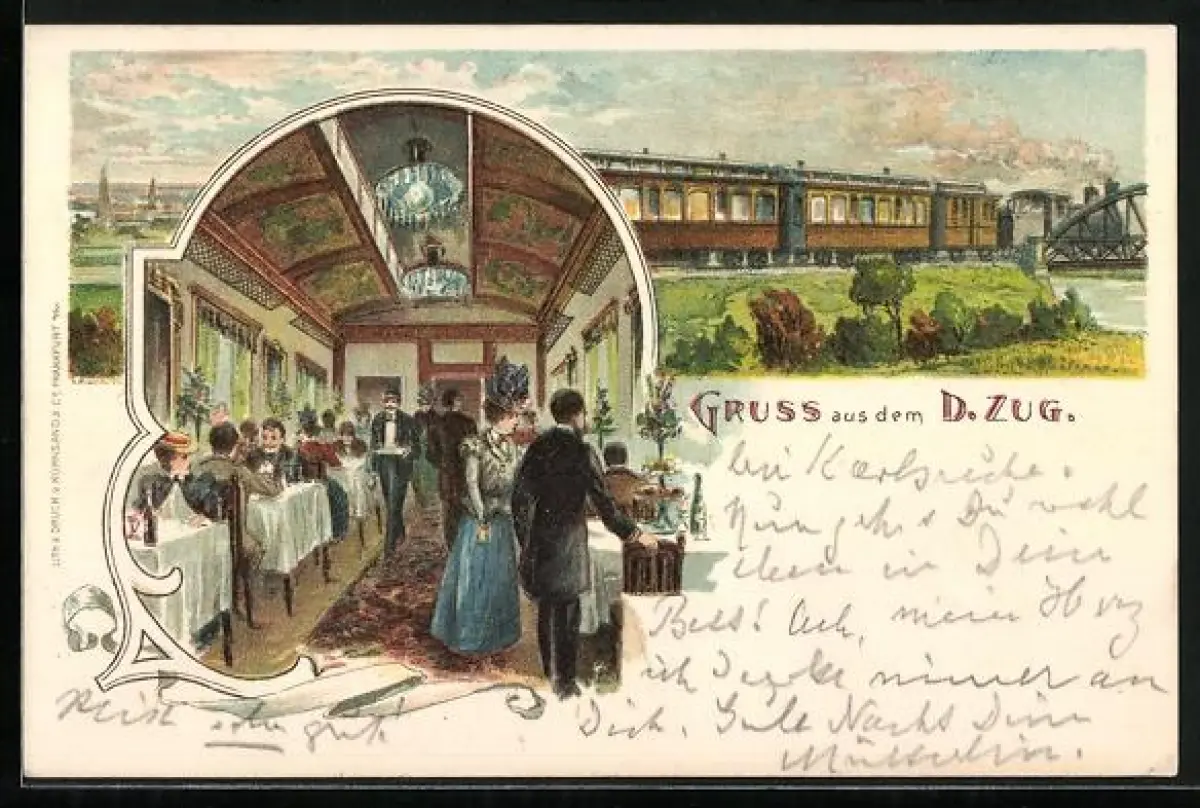 LITH. & DRUCK v. KORNSAND & Co. FRANKFURT a/M.
GRUSS aus dem D. ZUG.
bei Karlsruhe.
Nun gehs Du wohl
eben in Dein
Bett! Ach, mein Herz
ich denke immer an
Dich. Gute Nacht Deine
Mütterlein.
sehr gut!